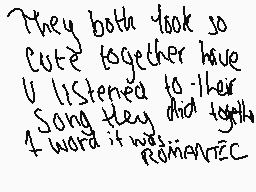 They both look so
cute together have
U listened to their
song they did togeth
1 word it was..
ROMANTIC